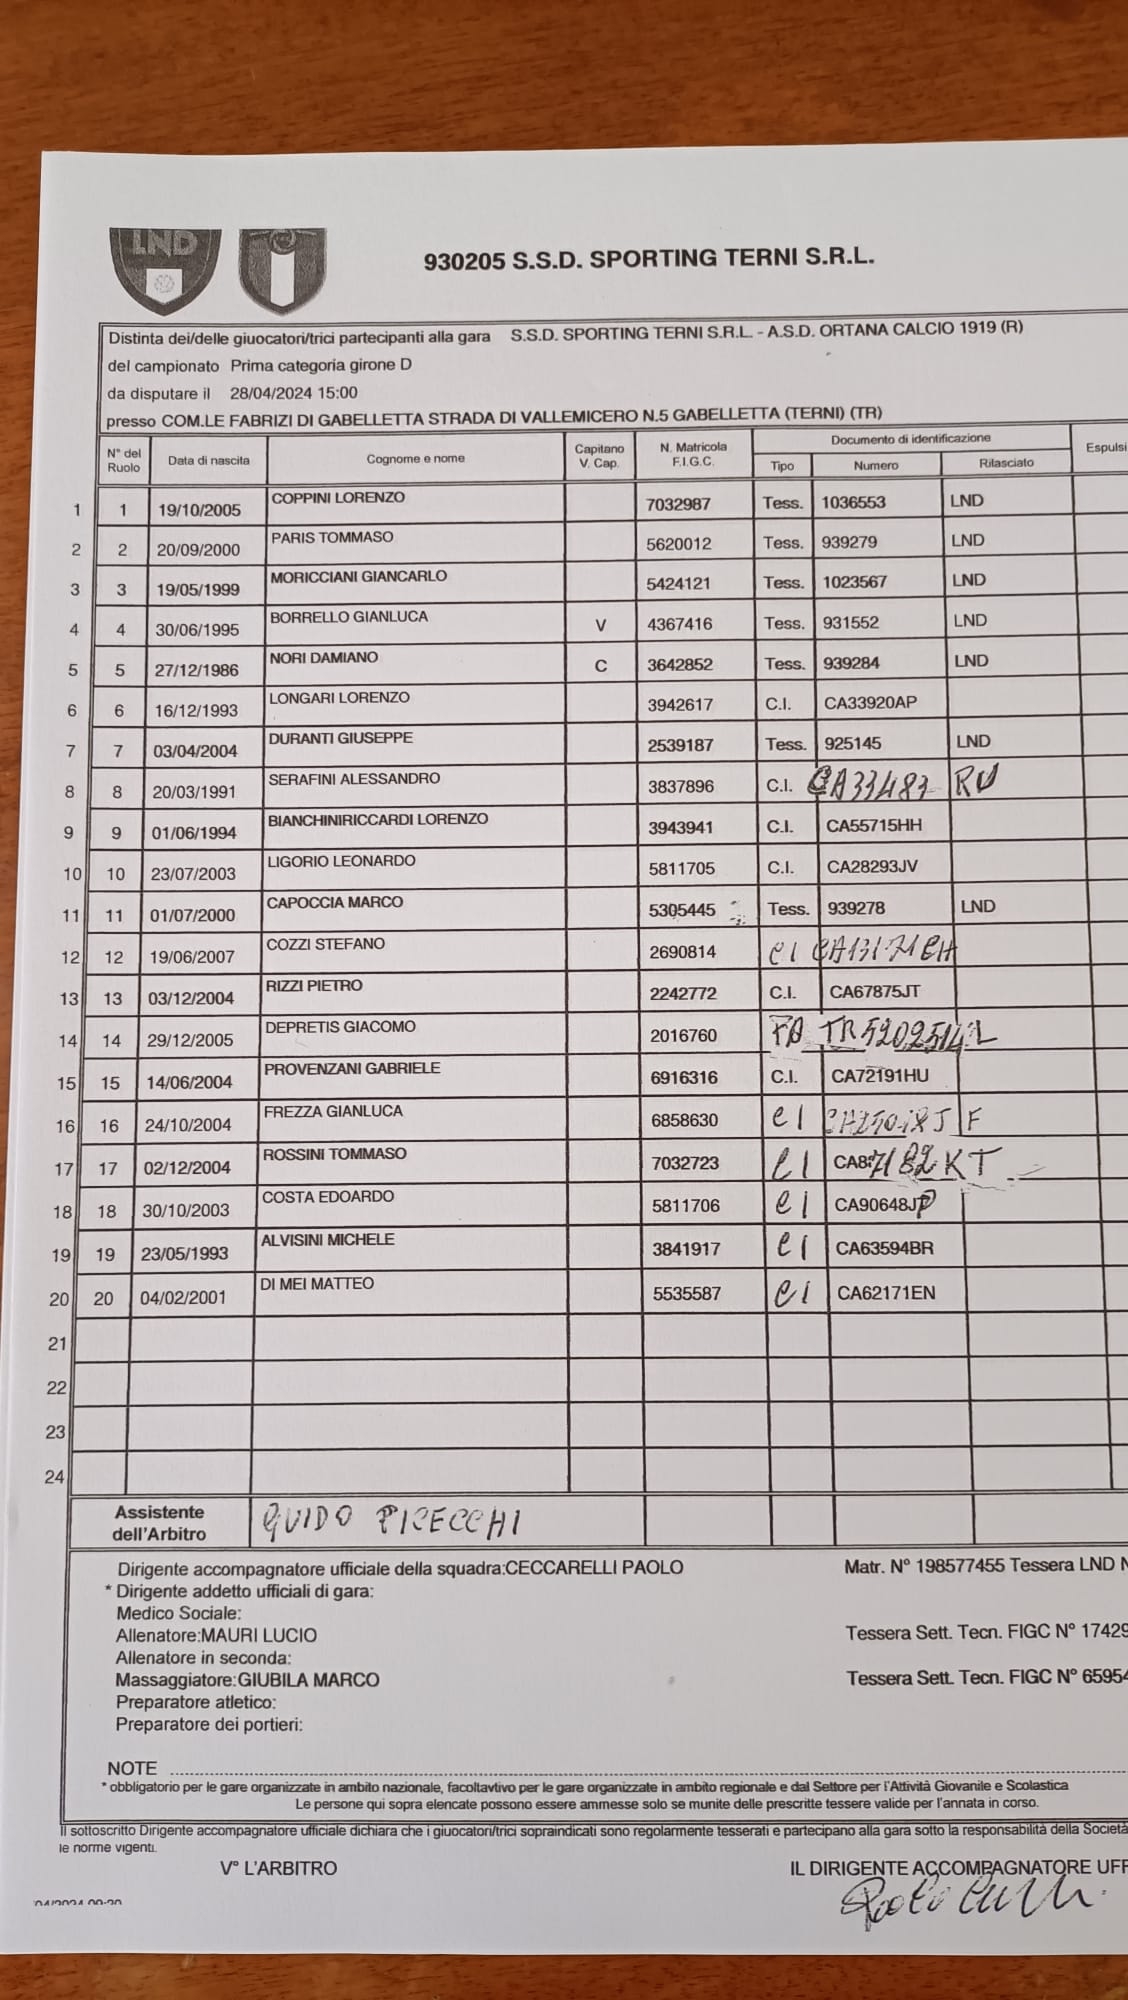 LND
930205 S.S.D. SPORTING TERNI S.R.L.
Distinta dei/delle giuocatori/trici partecipanti alla gara S.S.D. SPORTING TERNI S.R.L. - A.S.D. ORTANA CALCIO 1919 (R)
del campionato Prima categoria girone D
da disputare il 28/04/2024 15:00
presso COM.LE FABRIZI DI GABELLETTA STRADA DI VALLEMICERO N.5 GABELLETTA (TERNI) (TR)
N° del Ruolo Data di nascita Cognome e nome Capitano V. Cap. N. Matricola F.I.G.C. Documento di identificazione Espulsi
Tipo Numero Rilasciato
1 1 19/10/2005 COPPINI LORENZO 7032987 Tess. 1036553 LND
2 2 20/09/2000 PARIS TOMMASO 5620012 Tess. 939279 LND
3 3 19/05/1999 MORICCIANI GIANCARLO 5424121 Tess. 1023567 LND
4 4 30/06/1995 BORRELLO GIANLUCA V 4367416 Tess. 931552 LND
5 5 27/12/1986 NORI DAMIANO C 3642852 Tess. 939284 LND
6 6 16/12/1993 LONGARI LORENZO 3942617 C.I. CA33920AP
7 7 03/04/2004 DURANTI GIUSEPPE 2539187 Tess. 925145 LND
8 8 20/03/1991 SERAFINI ALESSANDRO 3837896 C.I. CA33483 RU
9 9 01/06/1994 BIANCHINIRICCARDI LORENZO 3943941 C.I. CA55715HH
10 10 23/07/2003 LIGORIO LEONARDO 5811705 C.I. CA28293JV
11 11 01/07/2000 CAPOCCIA MARCO 5305445 Tess. 939278 LND
12 12 19/06/2007 COZZI STEFANO 2690814 CI
13 13 03/12/2004 RIZZI PIETRO 2242772 C.I. CA67875JT
14 14 29/12/2005 DEPRETIS GIACOMO 2016760
15 15 14/06/2004 PROVENZANI GABRIELE 6916316 C.I. CA72191HU
16 16 24/10/2004 FREZZA GIANLUCA 6858630 CI
17 17 02/12/2004 ROSSINI TOMMASO 7032723 CI CA87182KT
18 18 30/10/2003 COSTA EDOARDO 5811706 CI CA90648JP
19 19 23/05/1993 ALVISINI MICHELE 3841917 CI CA63594BR
20 20 04/02/2001 DI MEI MATTEO 5535587 CI CA62171EN
21
22
23
24
Assistente dell'Arbitro GUIDO PICECCHI
Dirigente accompagnatore ufficiale della squadra:CECCARELLI PAOLO Matr. N° 198577455 Tessera LND N
* Dirigente addetto ufficiali di gara:
Medico Sociale:
Allenatore:MAURI LUCIO Tessera Sett. Tecn. FIGC N° 17429
Allenatore in seconda:
Massaggiatore:GIUBILA MARCO Tessera Sett. Tecn. FIGC N° 65954
Preparatore atletico:
Preparatore dei portieri:
NOTE
* obbligatorio per le gare organizzate in ambito nazionale, facoltavtivo per le gare organizzate in ambito regionale e dal Settore per l'Attività Giovanile e Scolastica
Le persone qui sopra elencate possono essere ammesse solo se munite delle prescritte tessere valide per l'annata in corso.
Il sottoscritto Dirigente accompagnatore ufficiale dichiara che i giuocatori/trici sopraindicati sono regolarmente tesserati e partecipano alla gara sotto la responsabilità della Società
le norme vigenti.
V° L'ARBITRO IL DIRIGENTE ACCOMPAGNATORE UFF